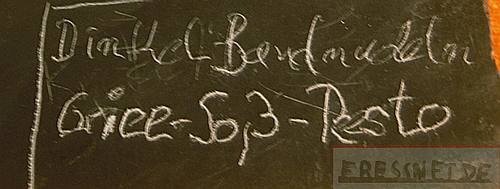 Dinkel-Bandnudeln
Griee-So,3-Pesto
ERESSNET.DE